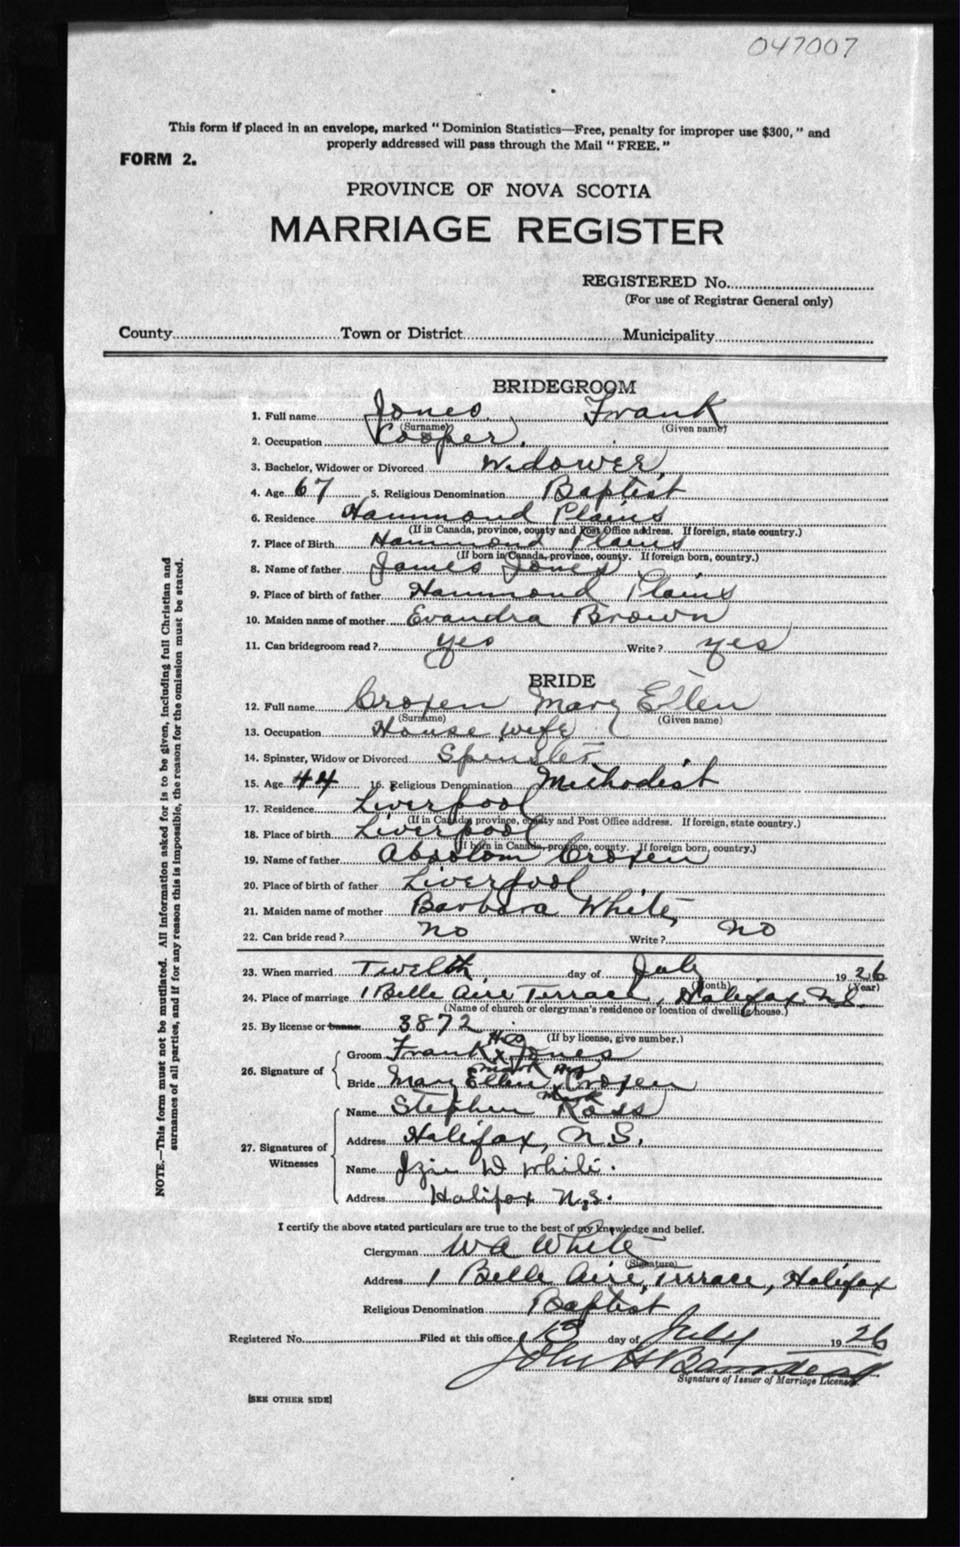 047007
This form if placed in an envelope, marked "Dominion Statistics—Free, penalty for improper use $300," and
properly addressed will pass through the Mail "FREE."
FORM 2.
PROVINCE OF NOVA SCOTIA
MARRIAGE REGISTER
REGISTERED No.
(For use of Registrar General only)
County Town or District Municipality
BRIDEGROOM
1. Full name Jones Frank
(Surname) (Given name)
2. Occupation Cooper.
3. Bachelor, Widower or Divorced Widower
4. Age 67 5. Religious Denomination Baptist
6. Residence Hammond Plains
(If in Canada, province, county and Post Office address. If foreign, state country.)
7. Place of Birth Hammond Plains
(If born in Canada, province, county. If foreign born, country.)
8. Name of father James Jones
9. Place of birth of father Hammond Plains
10. Maiden name of mother Evandra Brown
11. Can bridegroom read? yes Write? yes
BRIDE
12. Full name Croxen Mary Ellen
(Surname) (Given name)
13. Occupation House wife
14. Spinster, Widow or Divorced Spinster
15. Age 44 16. Religious Denomination Methodist
17. Residence Liverpool
(If in Canada, province, county and Post Office address. If foreign, state country.)
18. Place of birth Liverpool
(If born in Canada, province, county. If foreign born, country.)
19. Name of father Absolom Croxen
20. Place of birth of father Liverpool
21. Maiden name of mother Barbara White
22. Can bride read? no Write? no
23. When married Twelth day of July 1926
(Month) (Year)
24. Place of marriage 1 Belle Aire Terrace, Halifax N.S.
(Name of church or clergyman's residence or location of dwelling house.)
25. By license or banns 3872
(If by license, give number.)
26. Signature of
Groom Frank his x mark Jones
Bride Mary Ellen her x mark Croxen
27. Signatures of Witnesses
Name Stephen Ross
Address Halifax, N.S.
Name D White.
Address Halifax N.S.
I certify the above stated particulars are true to the best of my knowledge and belief.
Clergyman W A White
(Signature)
Address 1 Belle Aire Terrace, Halifax
Religious Denomination Baptist
Registered No. Filed at this office 13 day of July 1926
John H
Signature of Issuer of Marriage License.
[SEE OTHER SIDE]
NOTE.—This form must not be mutilated. All information asked for is to be given, including full Christian and
surnames of all parties, and if for any reason this is impossible, the reason for the omission must be stated.